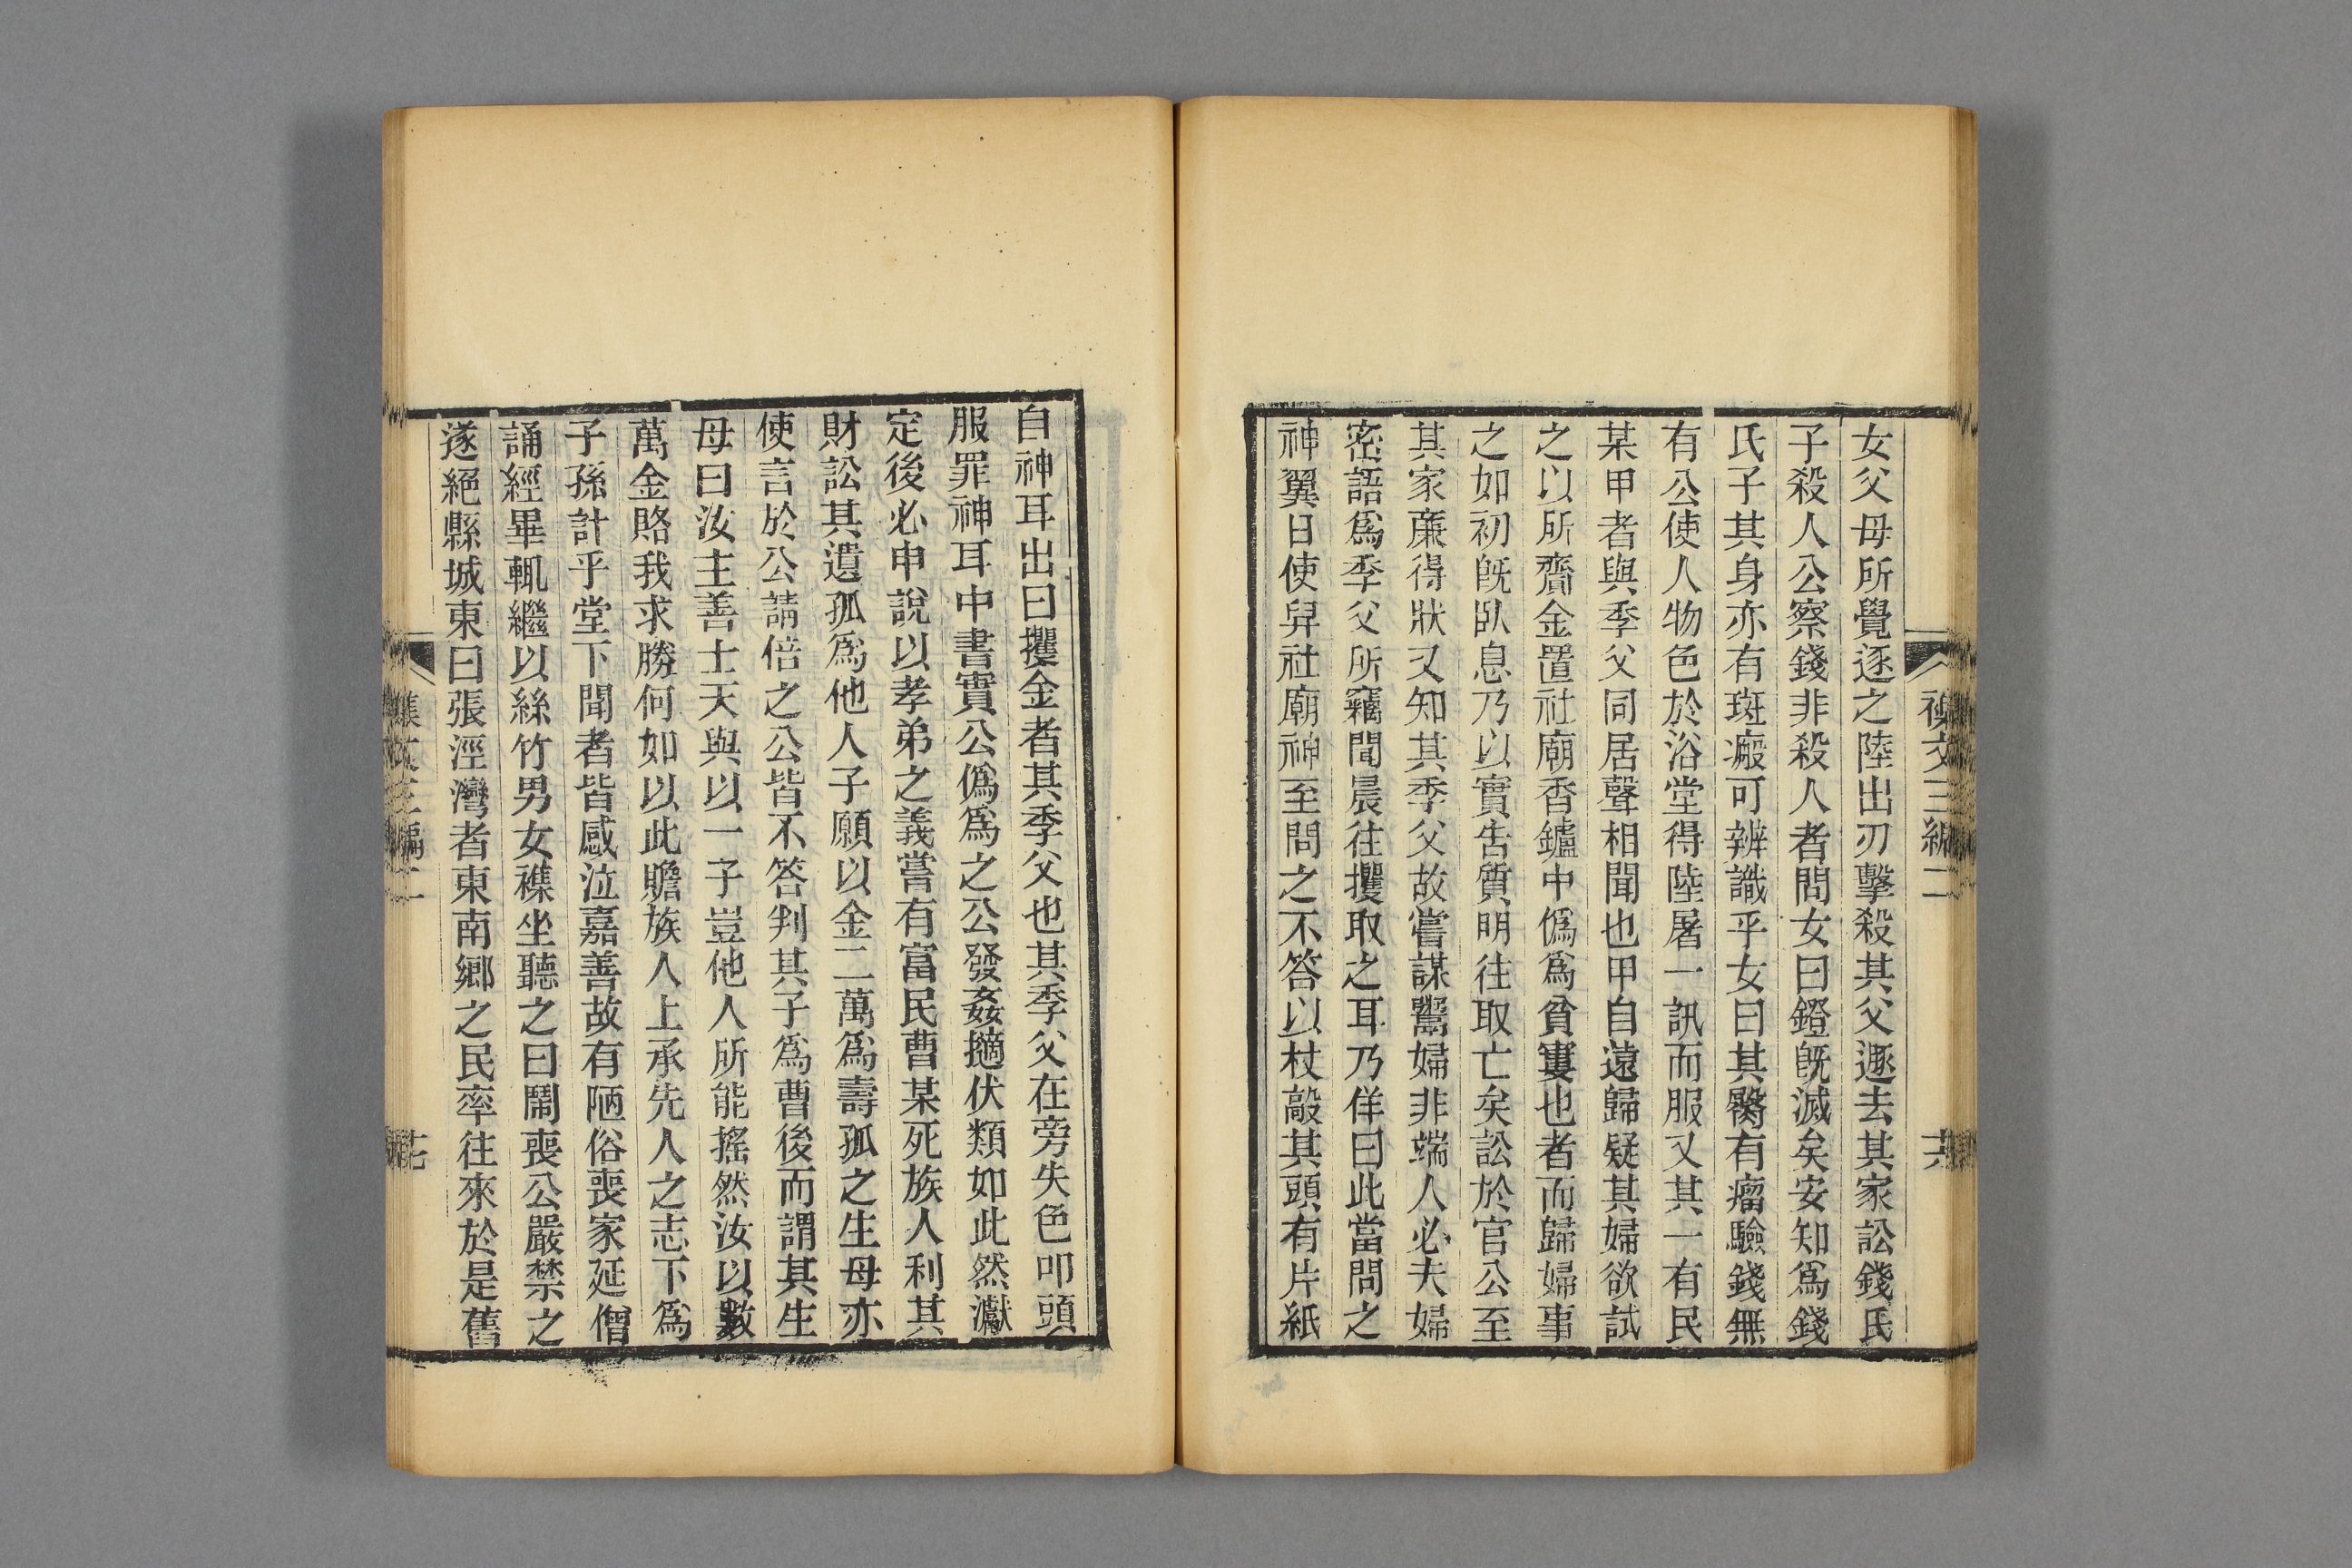 女父母所覺逐之陸出刃擊殺其父遯去其家訟錢氏
子殺人公察錢非殺人者問女曰鐙旣滅矣安知爲錢
氏子其身亦有斑癜可辨識乎女曰其臋有瘤驗錢無
有公使人物色於浴堂得陸屠一訊而服又其一有民
某甲者與季父同居聲相聞也甲自遠歸疑其婦欲試
之以所齎金置社廟香鑪中僞爲貧窶也者而歸婦事
之如初旣臥息乃以實告質明往取亡矣訟於官公至
其家廉得狀又知其季父故嘗謀鬻婦非端人必夫婦
密語爲季父所竊聞晨往攫取之耳乃佯曰此當問之
神翼日使舁社廟神至問之不答以杖敲其頭有片紙
自神耳出曰攫金者其季父也其季父在旁失色叩頭
服罪神耳中書實公僞爲之公發姦擿伏類如此然讞
定後必申說以孝弟之義嘗有富民曹某死族人利其
財訟其遺孤爲他人子願以金二萬爲壽孤之生母亦
使言於公請倍之公皆不答判其子爲曹後而謂其生
母曰汝主善士天與以一子豈他人所能搖然汝以數
萬金賂我求勝何如以此贍族人上承先人之志下爲
子孫計乎堂下聞者皆感泣嘉善故有陋俗喪家延僧
誦經畢輒繼以絲竹男女襍坐聽之曰鬧喪公嚴禁之
遂絕縣城東曰張涇灣者東南鄉之民率往來於是舊